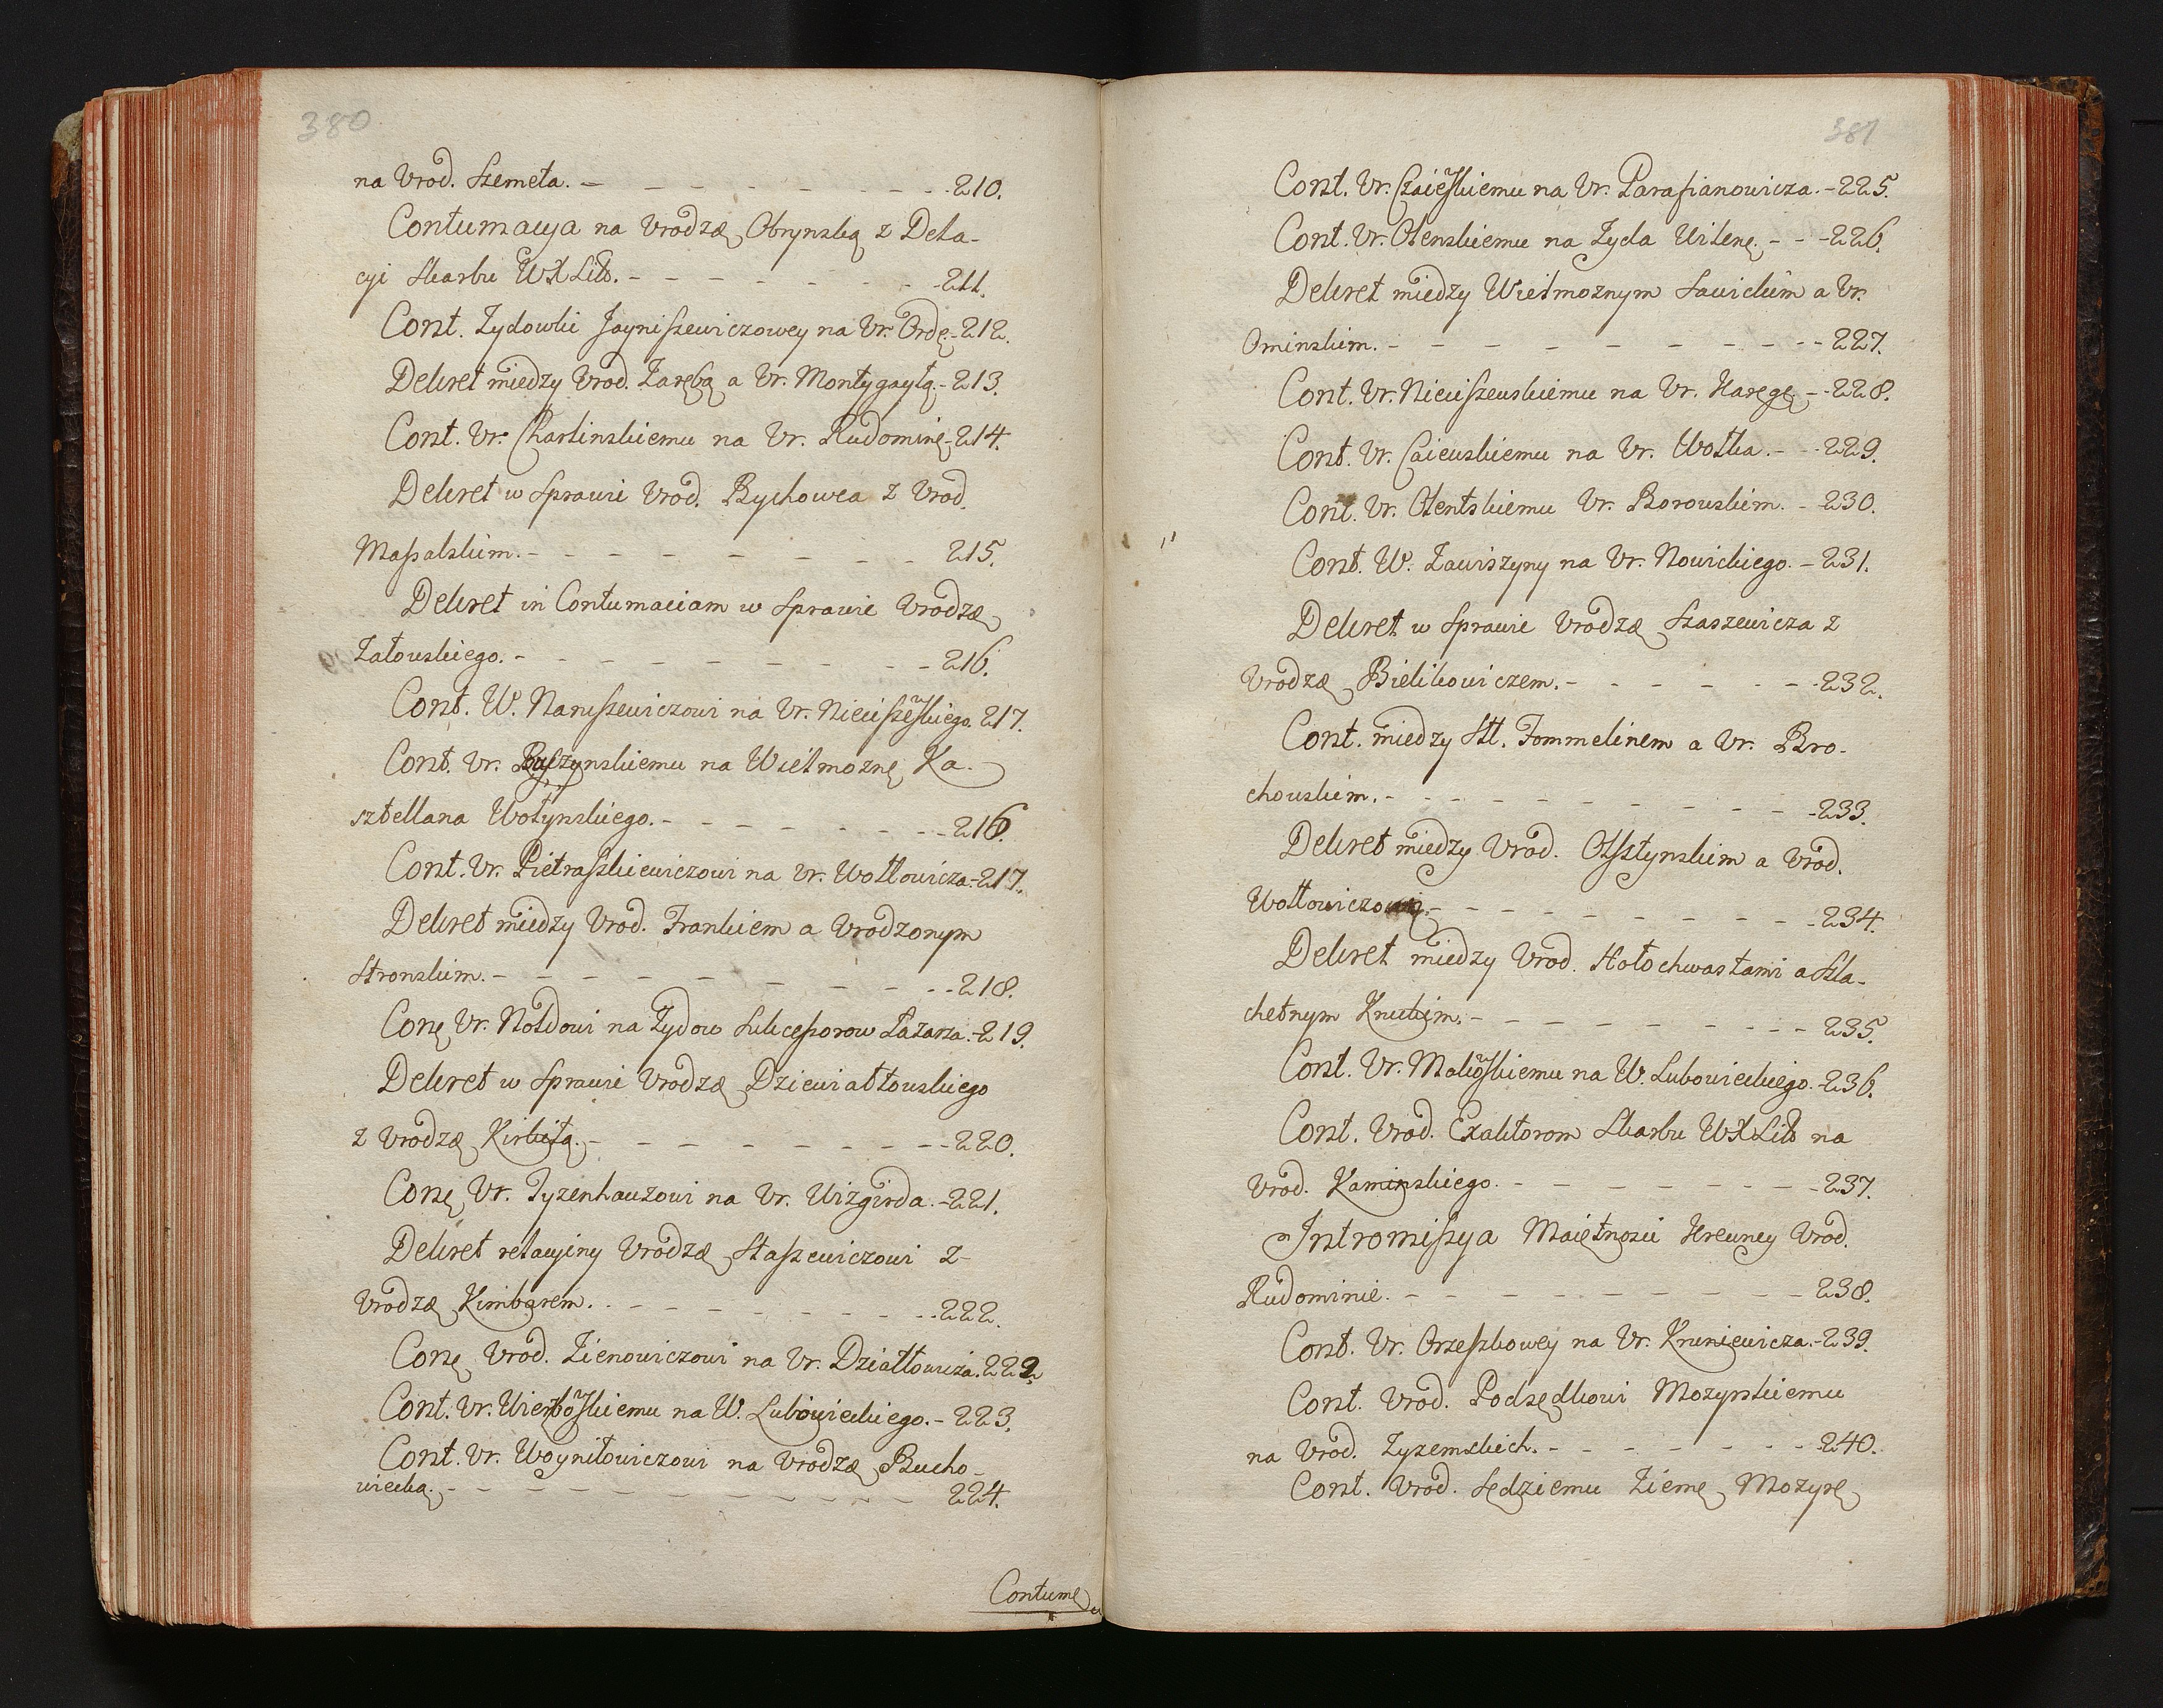 380
na Vrod. Szemeta. - - - - - - - - - 210.
Contumacya na Vrodzę Obrynską z Dela-
cyi Skarbu WXLitt. - - - - - - - - 211.
Cont. Zydowki Jayniszewiczowey na Vr. Ordę - 212.
Dekret między Vrod. Zarębą a Vr. Montygayłą - 213.
Cont. Vr. Charlinskiemu na Vr. Rudominę - 214.
Dekret w Sprawie Vrod. Bychowca z Vrod.
Massalskim. - - - - - - - - 215.
Dekret in Contumaciam w Sprawie Vrodzę
Załouskiego. - - - - - - - - 216.
Cont. W. Naruszewiczowi na Vr. Nieciszewskiego. 217.
Cont. Vr. na Wielmoznę Ka-
sztellana Wołynskiego. - - - - - - - - 216.
Cont. Vr. Pietraszkiewiczowi na Vr. Wołłowicza - 217.
Dekret między Vrod. Frankiem a Vrodzonym
Stronskim. - - - - - - - - 218.
Conę Vr. Nołdowi na Zydow Sukcessorow Łazarza. - 219.
Dekret w Sprawie Vrodzę Dziewiałtouskiego
z Vrodzę Kirkiłą. - - - - - - - - 220.
Conę Vr. Tyzenhauzowi na Vr. Wizgirda. - 221.
Dekret relacyiny Vrodzę Staszewiczowi z
Vrodzę Kimbarem. - - - - - - - - 222.
Conę Vrod. Zienowiczowi na Vr. Działłowicza. 222.
Cont. Vr. Wierzboskiemu na W. Lubowieckiego. - 223.
Cont. Vr. Woyniłowiczowi na Vrodzę Bucho-
wiecką. - - - - - - - - 224.
Contumę
381
Cont. Vr. Czaieskiemu na Vr. Parafianowicza. - 225.
Cont. Vr. Olenskiemu na Zyda Wilenę. - - - 226.
Dekret między Wielmoznym Sawickim a Vr.
Ominskim. - - - - - - - - - 227.
Cont. Vr. Nieciszeuskiemu na Vr. Haręgę - - 228.
Cont. Vr. Caieuskiemu na Vr. Wołka. - - - 229.
Cont. Vr. Olentskiemu Vr. Borouskim. - 230.
Cont. W. Zawiszyny na Vr. Nowickiego. - 231.
Dekret w Sprawie Vrodzę Szaszewicza z
Vrodzę Bielikowiczem. - - - - - - 232.
Cont. między Stt. Tommelinem a Vr. Bro-
chouskim. - - - - - - - - - 233.
Dekret między Vrod. Olsztynskim a Vrod.
Wołłowiczowi. - - - - - - - - - 234.
Dekret między Vrod. Hołochwastami a Szla-
chetnym Knukim. - - - - - - - - - 235.
Cont. Vr. Makoskiemu na W. Lubowieckiego. - 236.
Cont. Vrod. Exaktorom Skarbu WXLitt na
Vrod. Kaminskiego. - - - - - - - - 237.
Intromissya Maiętnosci Hreuney Vrod.
Rudominie. - - - - - - - - - 238.
Cont. Vr. Orzeszkowey na Vr. Kruniewicza. - 239.
Cont. Vrod. Podsędkowi Mozyrskiemu
na Vrod. Zyzemskich. - - - - - - - - 240.
Cont. Vrod. Sędziemu Ziemę Mozyrę